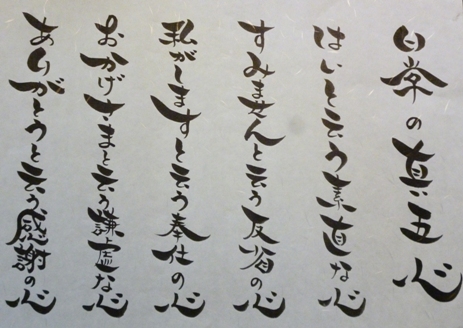 日常の真五心
はいと云う素直な心
すみませんと云う反省の心
私がしますと云う奉仕の心
おかげさまと云う謙虚な心
ありがとうと云う感謝の心